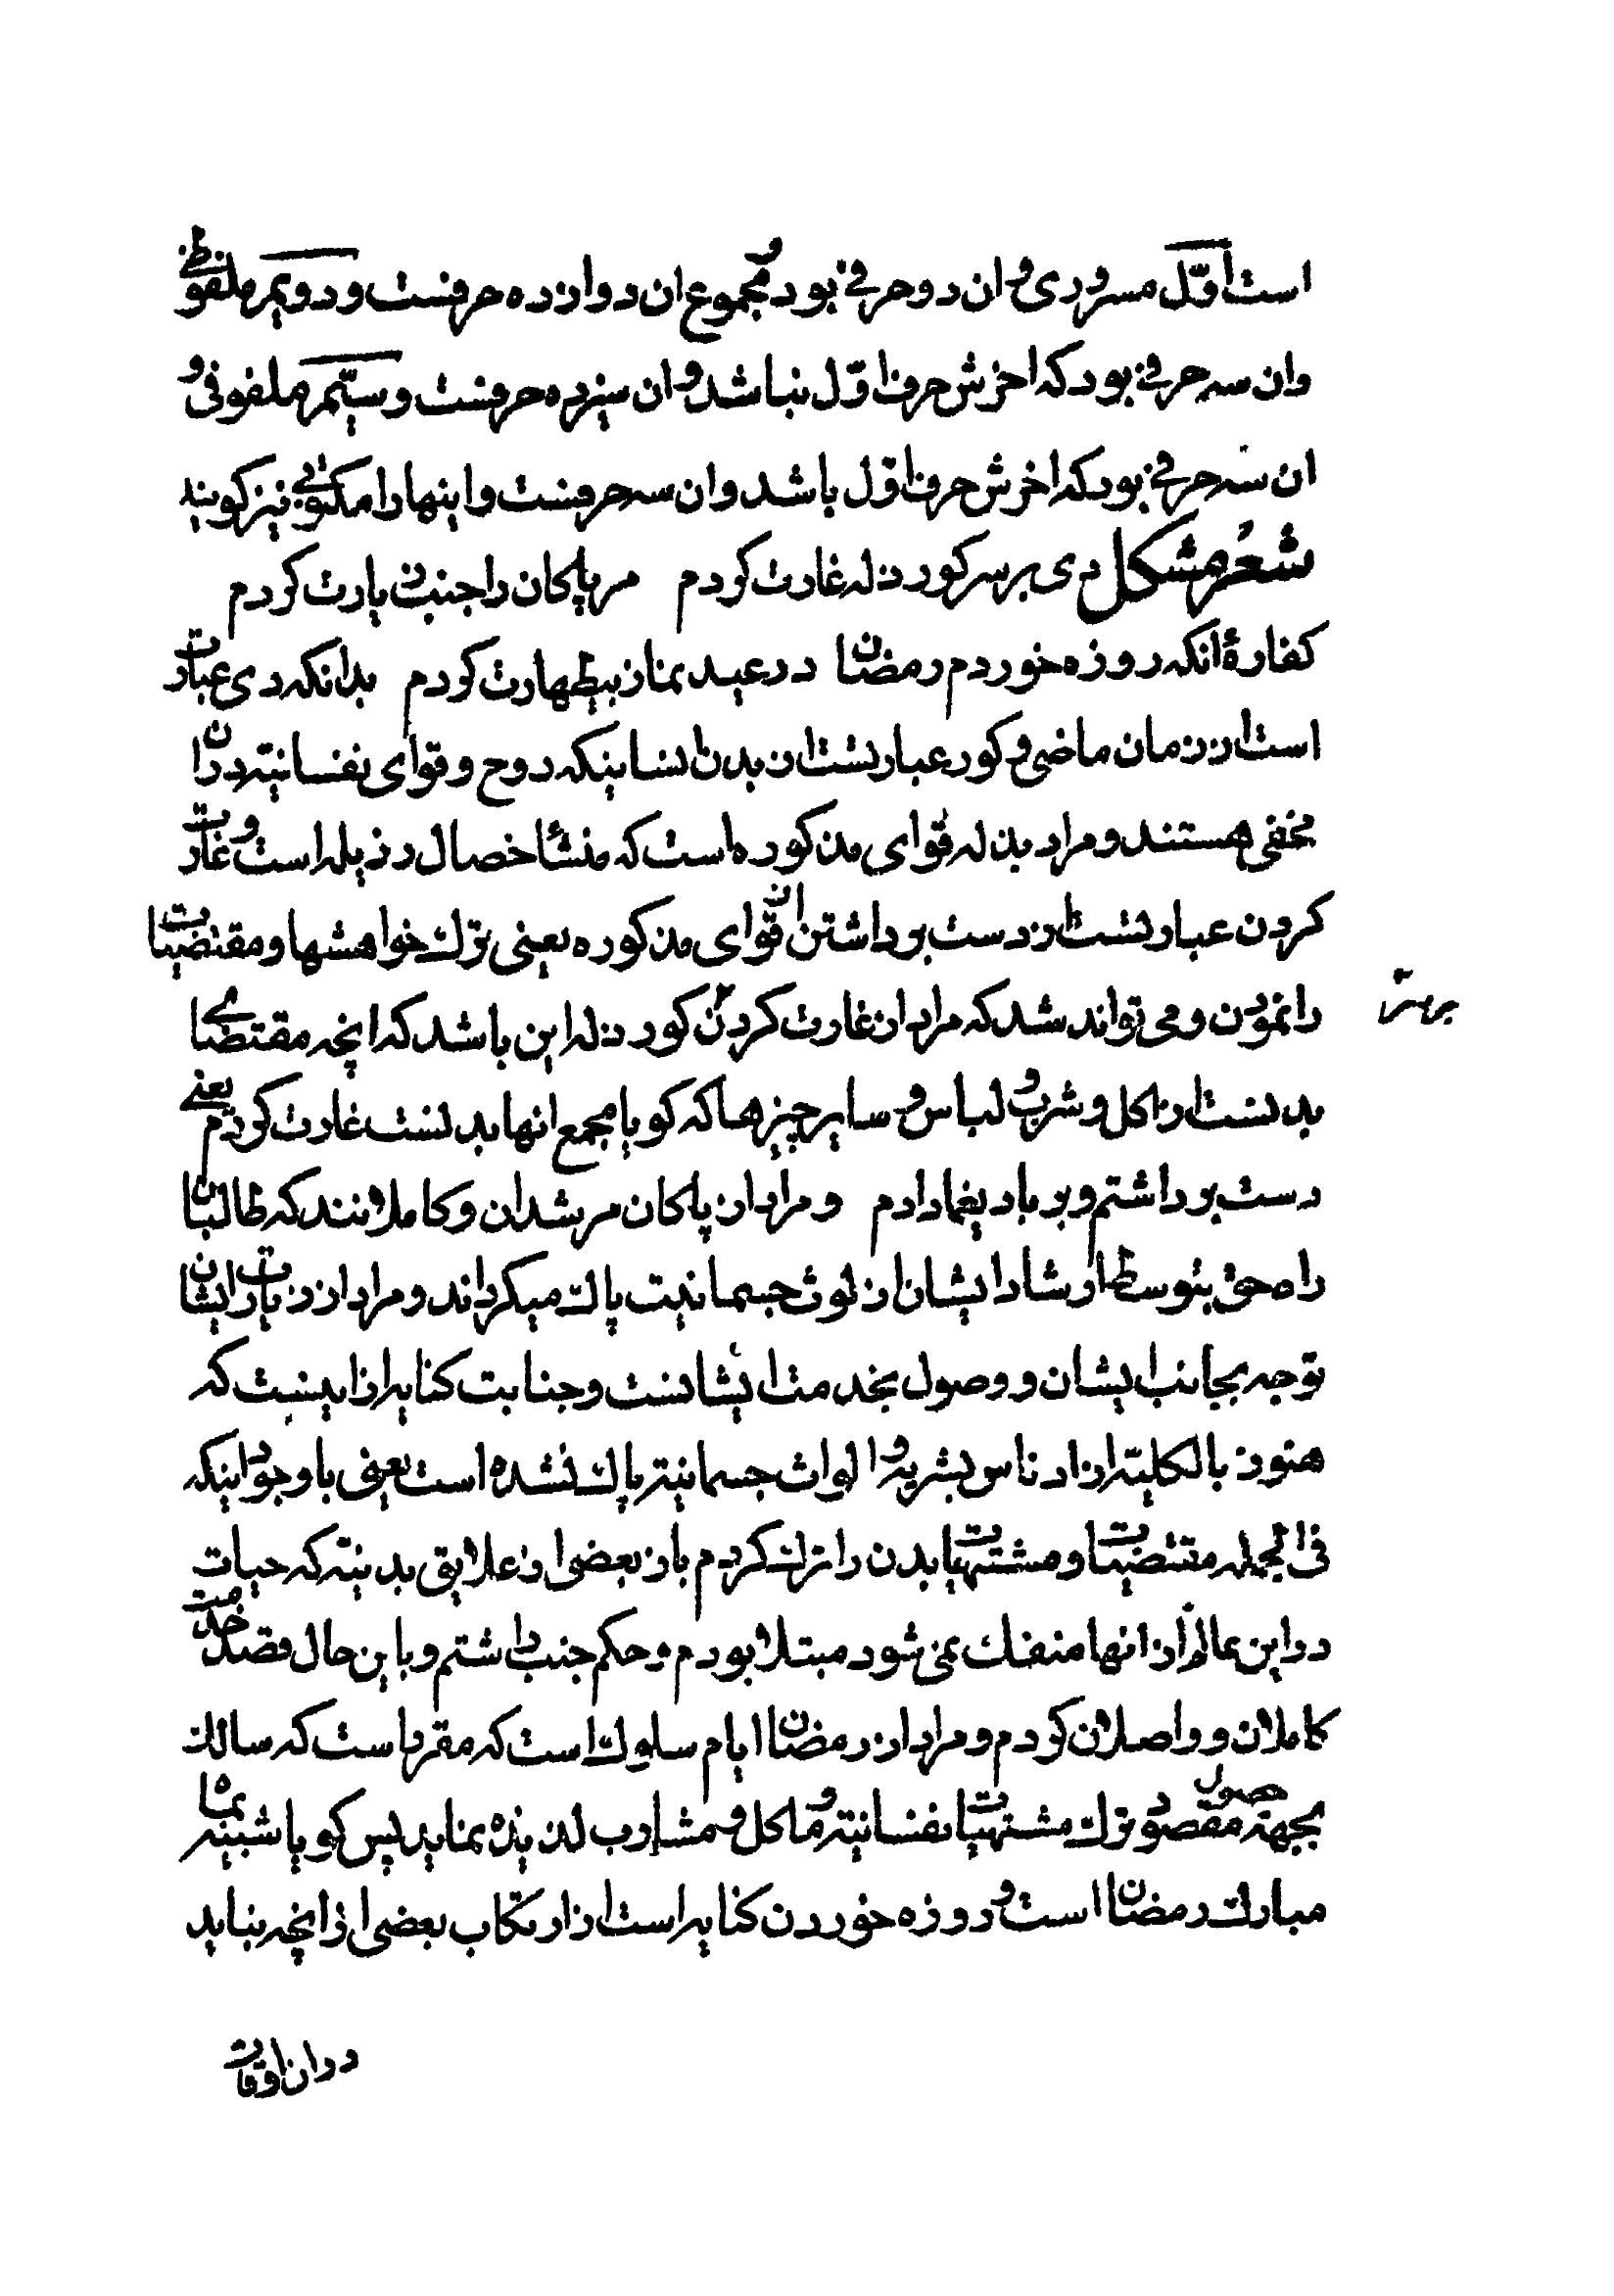 است اوّل مسروری و ان دو حرفی بود و مجموع ان دوازده حرفست و دویم ملفوظی
وان سه حرفی بود که اخرش حرف اوّل نباشد و ان سیزده حرفست و سیّم ملفوفی و
ان سه حرفی بود که اخرش حرف اوّل باشد وان سه حرفست و اینها را مکتوبی نیز کویند
شعر مشکل دی بر سر کور ذله غارت کردم مر پاکان را جنب زیارت کردم
کفارهٔ انکه روزه خوردم رمضان در عید نماز بیطهارت کردم بدانکه دی عبارت
است از زمان ماضی و کور عبارتست از بدن انسانیکه روح و قوای نفسانیّه دران
مخفی هستند و مراد بذله قوای مذکوره است که منشأ خصال رذیله است و غارت
کردن عبارتست از دست برداشتن از قوای مذکوره یعنی ترک خواهشها و مقتضیات
را نمودن و می تواند شد که مراد از غارت کردن کور ذله این باشد که انچه مقتضای
بدنست از اکل و شرب و لباس و سایر چیزها که کویا مجمع انها بدنست غارت کردم یعنی
دست برداشتم و بر باد یغما دادم و مراد از پاکان مرشدان و کاملانند که طالبان
راه حق بتوسط ارشاد ایشان از لوث جسمانیت پاک میکرداند و مراد از زیارت ایشان
توجه بجانب ایشان و وصول بخدمت ایشانست و جنابت کنایه از اینست که
هنوز بالکلیّه از ادناس بشریه و الواث جسمانیته پاک نشده است یعنی با وجود اینکه
فی الجمله مقتضیات و مشتهیات بدن را ترک کردم باز بعضی از علایق بدنیّه که حیات
در این عالم از انها منفک نمی شود مبتلا بودم و حکم جنب داشتم و با این حال قصد خدمت
کاملان و واصلان کردم و مراد از رمضان ایام سلوک است که مقرر است که سالک
بجهة حصول مقصود ترک مشتهیات نفسانیّه و ماکل و مشارب لذیذه نماید پس کویا شبیه بماه
مبارک رمضان است و روزه خوردن کنایه است از ارتکاب بعضی از انچه نباید
در ان اوقات